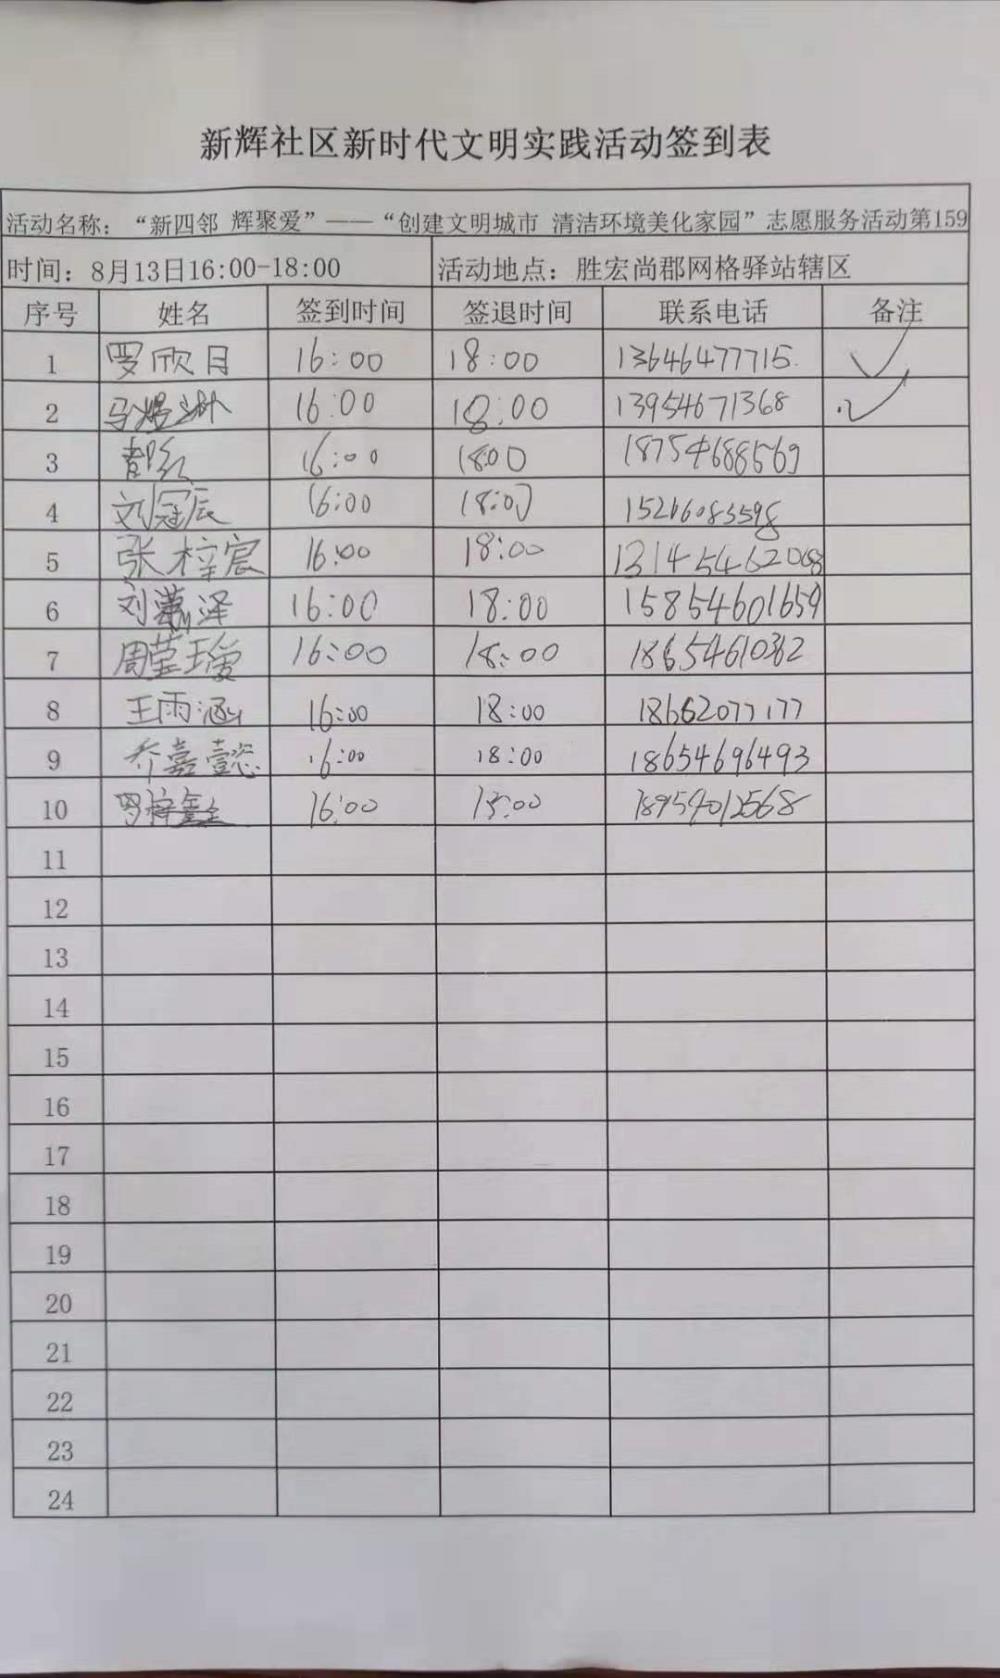 新辉社区新时代文明实践活动签到表
活动名称：“新四邻 辉聚爱”——“创建文明城市 清洁环境美化家园”志愿服务活动第159
时间：8月13日16:00-18:00 活动地点：胜宏尚郡网格驿站辖区
序号 姓名 签到时间 签退时间 联系电话 备注
1 罗欣月 16:00 18:00 13646477715. ✓
2 16:00 18:00 13954671368 ✓
3 16:00 18:00 18754688569
4 刘冠辰 16:00 18:00 15216083598
5 张梓宸 16:00 18:00 13145462068
6 16:00 18:00 15854601659
7 16:00 18:00 18654610362
8 王雨涵 16:00 18:00 18662077177
9 乔嘉懿 16:00 18:00 18654696493
10 16:00 18954012568
11
12
13
14
15
16
17
18
19
20
21
22
23
24